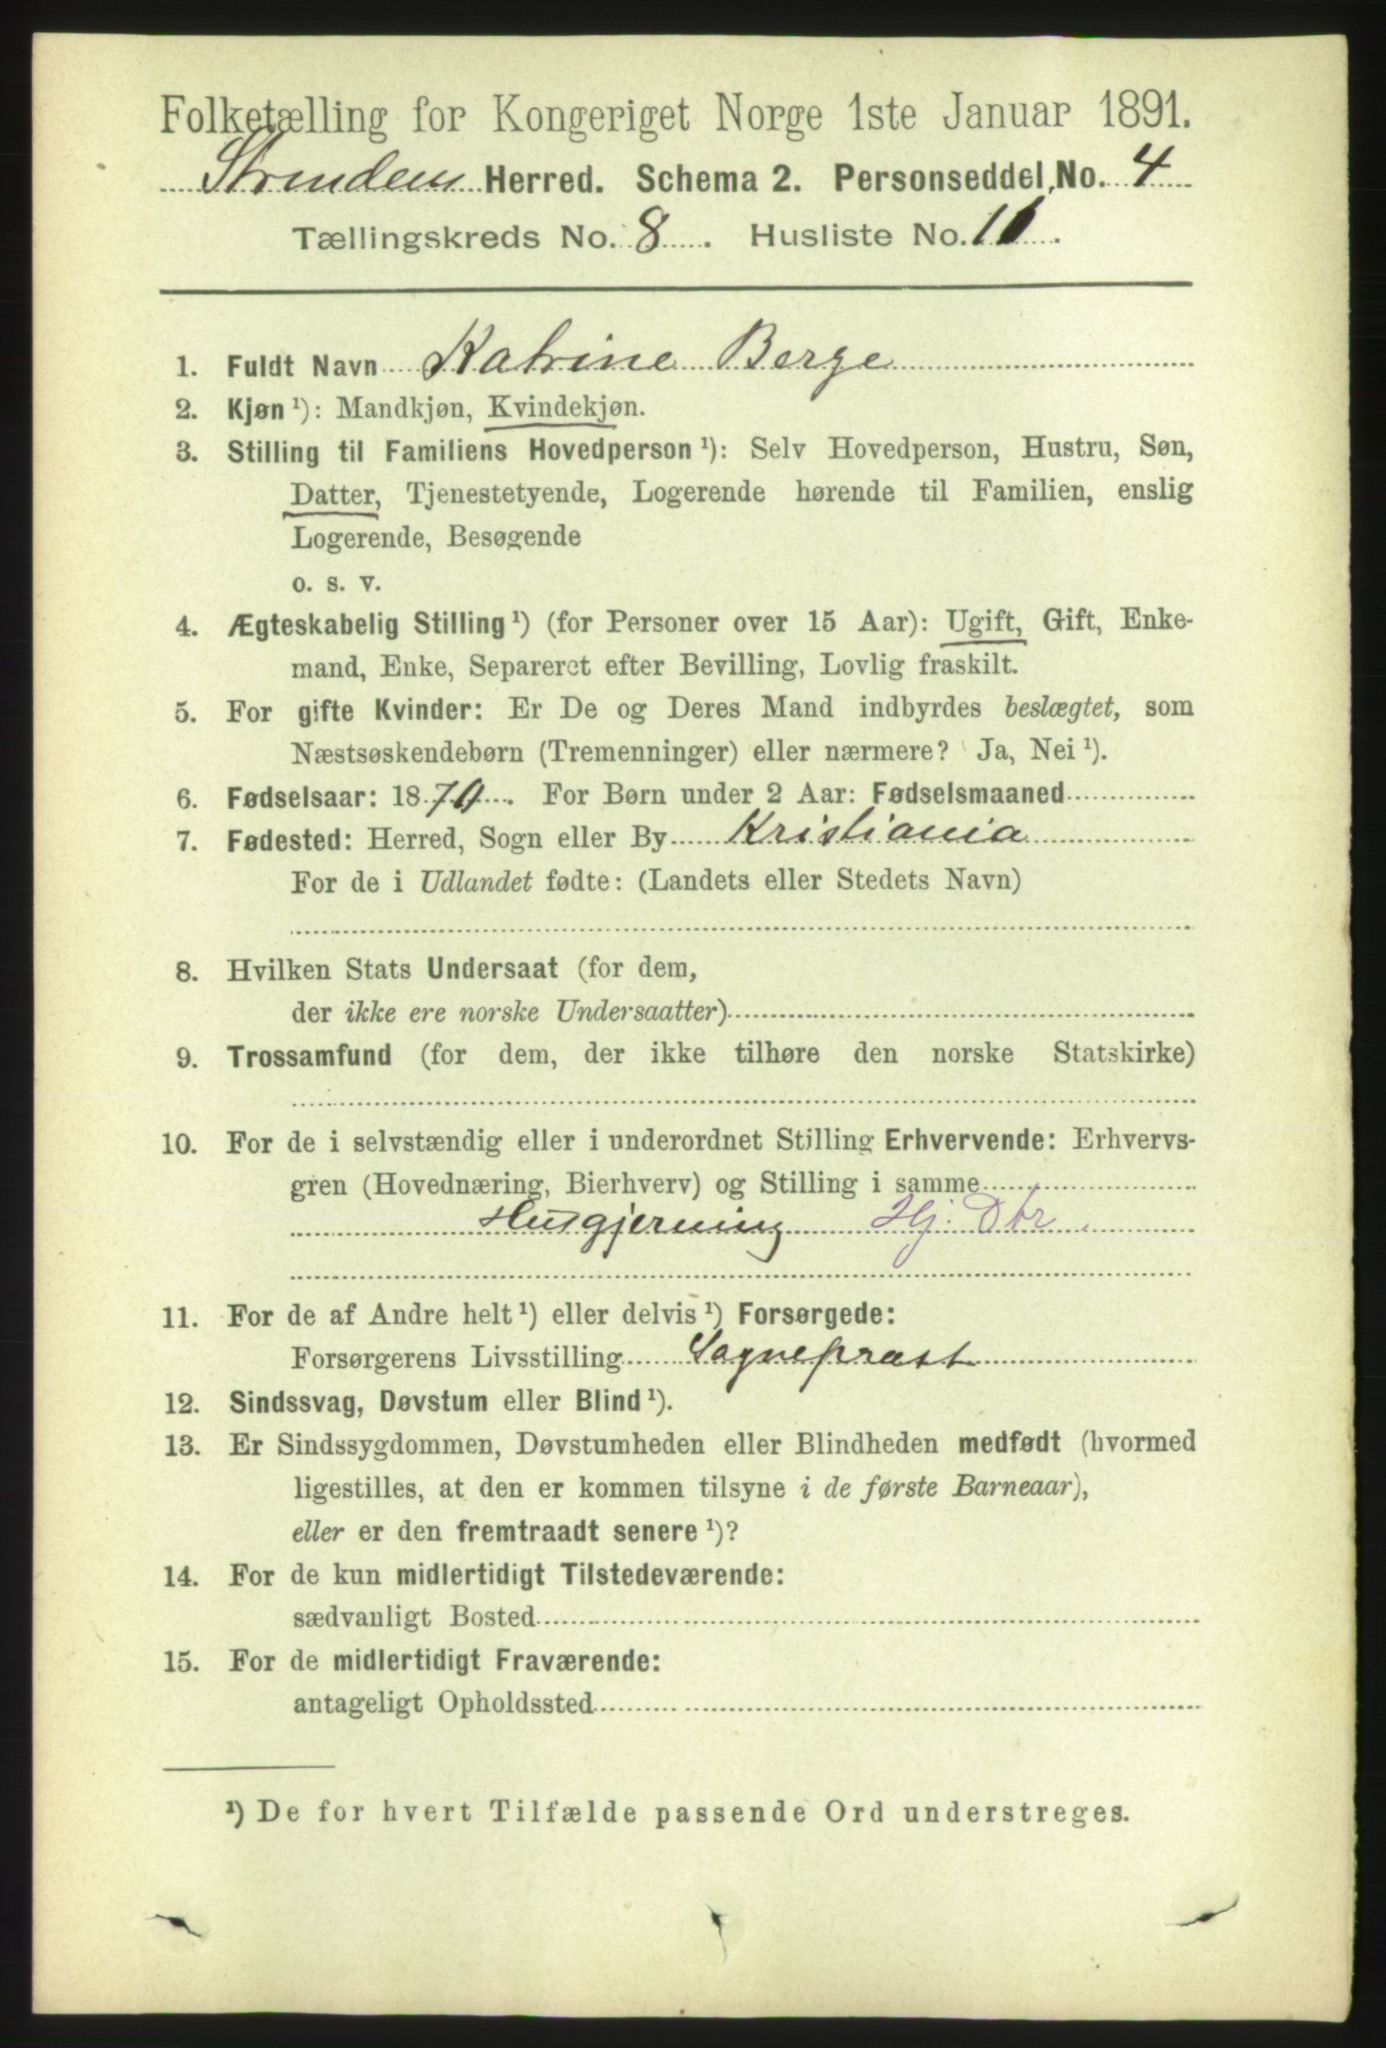 Folketælling for Kongeriget Norge 1ste Januar 1891.
Strinden Herred. Schema 2. Personseddel No. 4
Tællingskreds No. 8. Husliste No. 11.
1. Fuldt Navn Katrine Berge
2. Kjøn ¹): Mandkjøn, Kvindekjøn.
3. Stilling til Familiens Hovedperson ¹): Selv Hovedperson, Hustru, Søn,
Datter, Tjenestetyende, Logerende hørende til Familien, enslig
Logerende, Besøgende
o. s. v.
4. Ægteskabelig Stilling ¹) (for Personer over 15 Aar): Ugift, Gift, Enke-
mand, Enke, Separeret efter Bevilling, Lovlig fraskilt.
5. For gifte Kvinder: Er De og Deres Mand indbyrdes beslægtet, som
Næstsøskendebørn (Tremenninger) eller nærmere? Ja, Nei ¹).
6. Fødselsaar: 1870. For Børn under 2 Aar: Fødselsmaaned
7. Fødested: Herred, Sogn eller By Kristiania
For de i Udlandet fødte: (Landets eller Stedets Navn)
8. Hvilken Stats Undersaat (for dem,
der ikke ere norske Undersaatter)
9. Trossamfund (for dem, der ikke tilhøre den norske Statskirke)
10. For de i selvstændig eller i underordnet Stilling Erhvervende: Erhvervs-
gren (Hovednæring, Bierhverv) og Stilling i samme
Husgjerning Hj. Dtr.
11. For de af Andre helt ¹) eller delvis ¹) Forsørgede:
Forsørgerens Livsstilling Sognepræst
12. Sindssvag, Døvstum eller Blind ¹).
13. Er Sindssygdommen, Døvstumheden eller Blindheden medfødt (hvormed
ligestilles, at den er kommen tilsyne i de første Barneaar),
eller er den fremtraadt senere ¹)?
14. For de kun midlertidigt Tilstedeværende:
sædvanligt Bosted
15. For de midlertidigt Fraværende:
antageligt Opholdssted
¹) De for hvert Tilfælde passende Ord understreges.